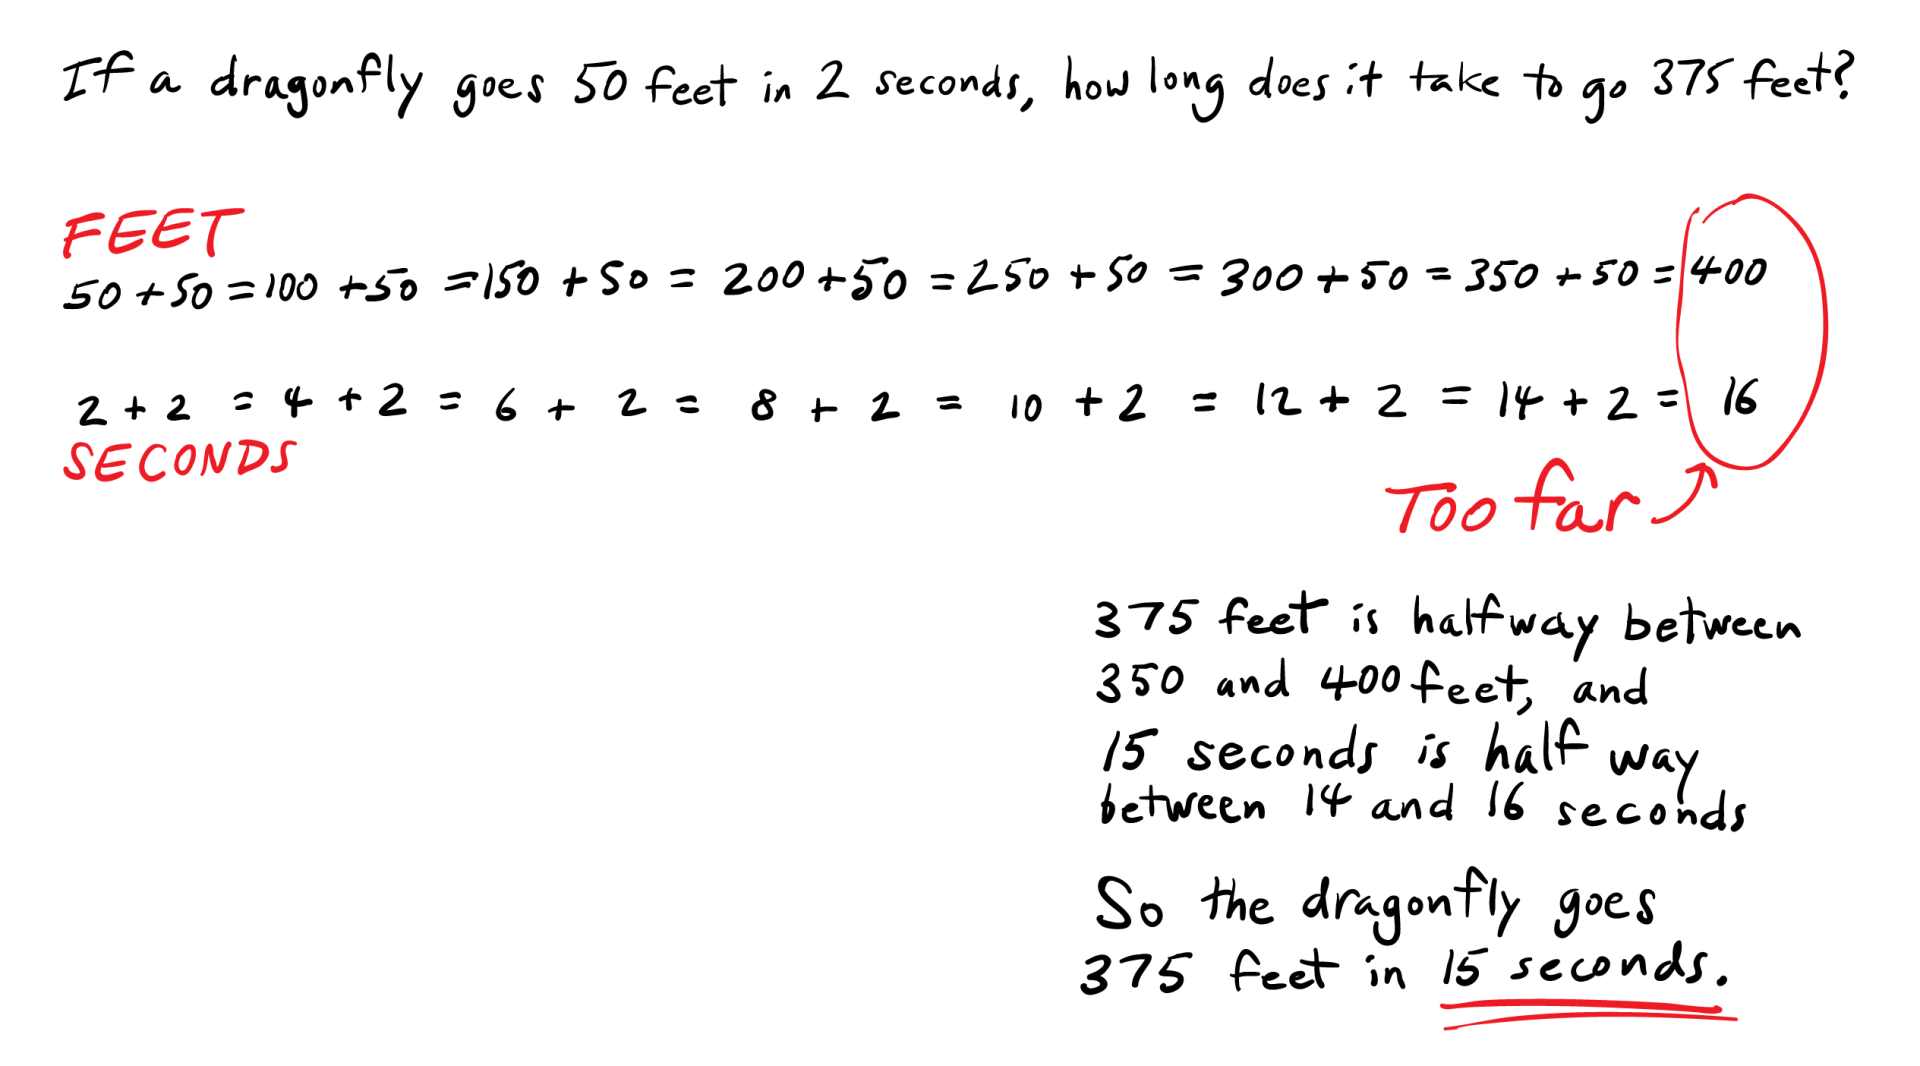 If a dragonfly goes 50 feet in 2 seconds, how long does it take to go 375 feet?
FEET
50 + 50 = 100 + 50 = 150 + 50 = 200 + 50 = 250 + 50 = 300 + 50 = 350 + 50 = 400
2 + 2 = 4 + 2 = 6 + 2 = 8 + 2 = 10 + 2 = 12 + 2 = 14 + 2 = 16
SECONDS
Too far
375 feet is halfway between
350 and 400 feet, and
15 seconds is half way
between 14 and 16 seconds
So the dragonfly goes
375 feet in 15 seconds.